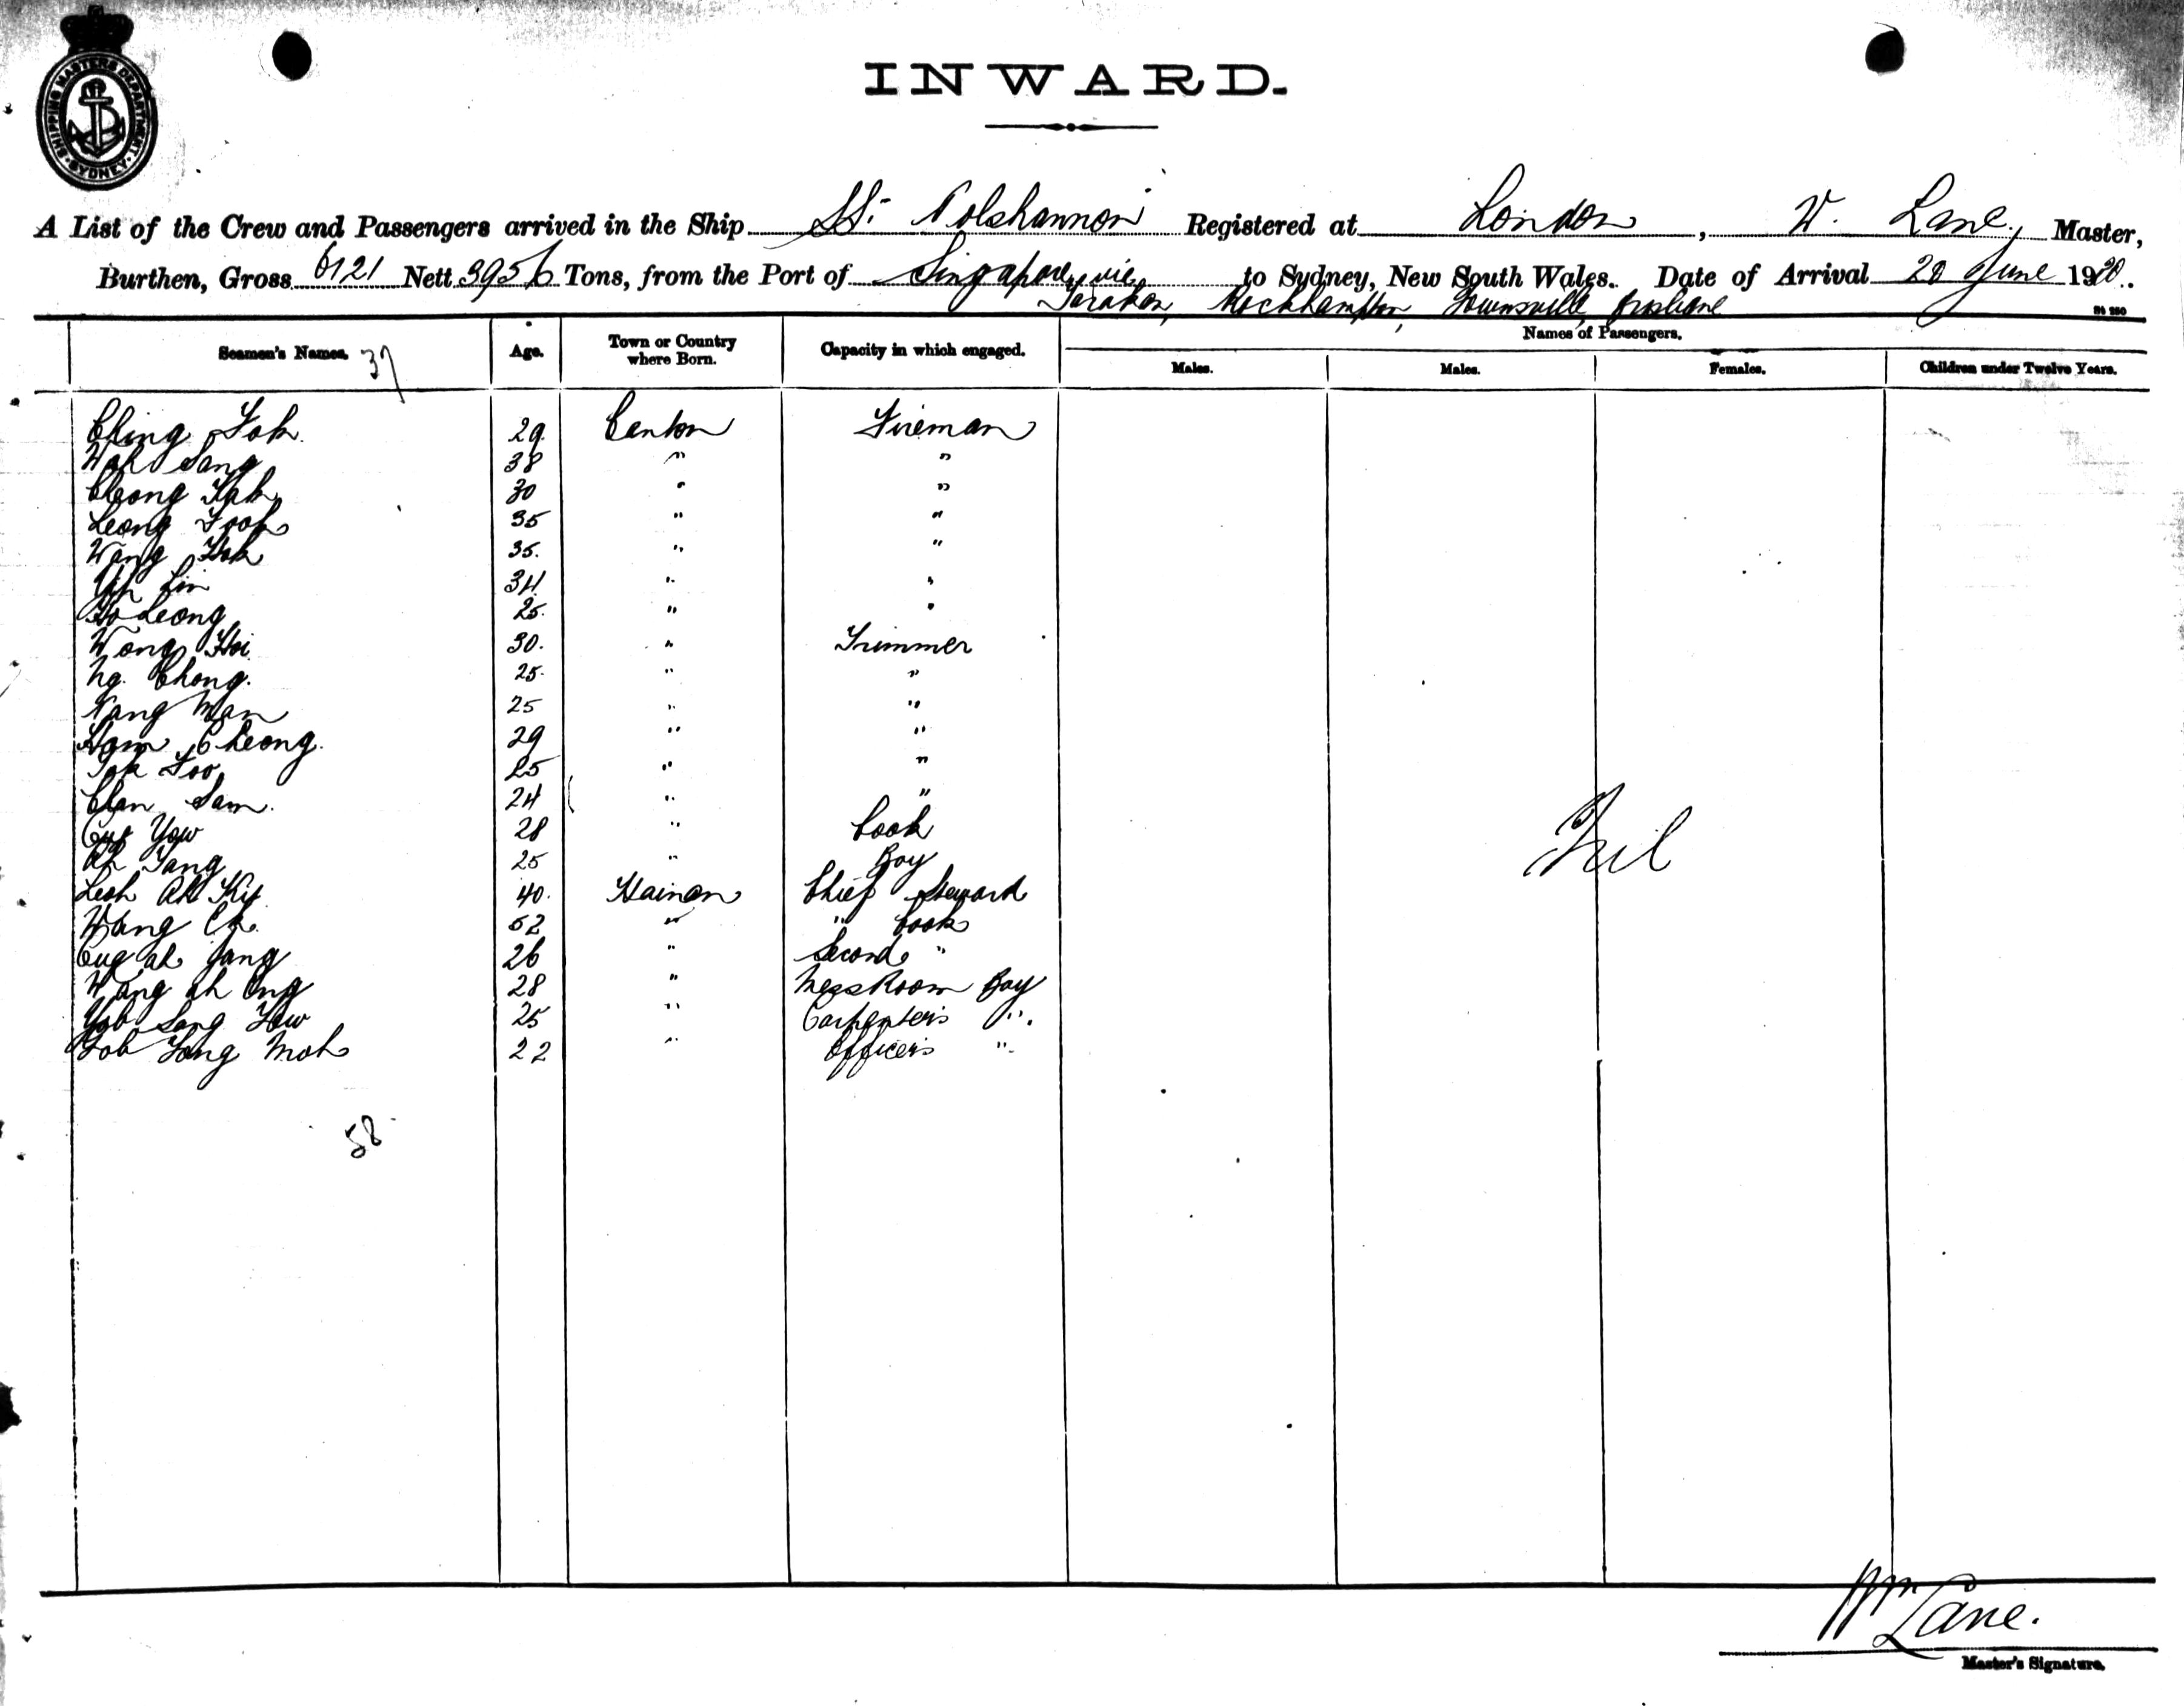 SHIPPING MASTERS DEPARTMENT · SYDNEY ·
INWARD.
A List of the Crew and Passengers arrived in the Ship SS. Registered at London, W. Lane, Master,
Burthen, Gross 6121 Nett 3956 Tons, from the Port of Singapore via to Sydney, New South Wales. Date of Arrival 28 June 1920.
Tarakan, Rockhampton, Townsville, Brisbane
Names of Passengers.
Seamen's Names. 37 Age. Town or Country where Born. Capacity in which engaged. Males. Males. Females. Children under Twelve Years.
Ching Fok 29 Canton Fireman
Wah Sang 38 " "
Cheong Hak 30 " "
Leong Fook 35 " "
Wong Hok 35. " "
Yip Lin 34 " "
Ho Leong 25. " "
Wong Hoi 30. " Trimmer
Ng. Chong. 25. " "
Man 25 " "
Ham Cheong. 29 " "
Foo 25 " "
Chan Sam. 24 " "
Yow 28 " Cook
Ah Yang 25 " Boy
Ah 40. Hainan Chief Steward
Wang 52 " " Cook
Ah 26 " Second "
Wang Ah Ong 28 " Mess Room Boy
25 " Carpenter's ".
22 " Officer's "
Nil
58
Wm Lane.
Master's Signature.